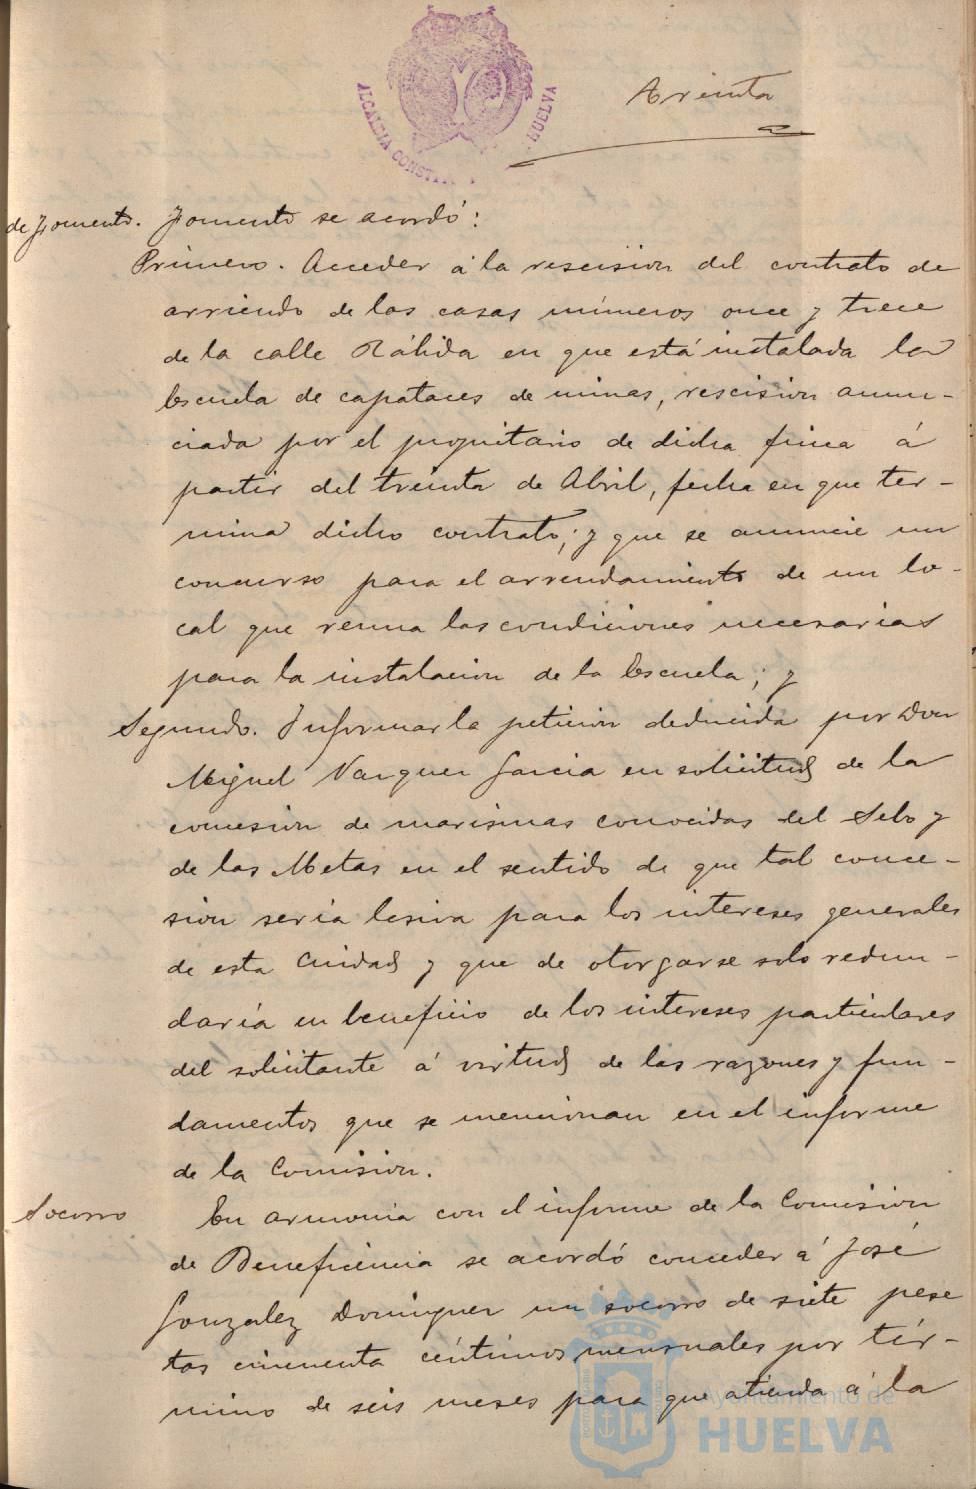 ALCALDIA CONSTI HUELVA
Treinta
de Fomento. Fomento se acordó:
Primero. Acceder á la rescision del contrato de
arriendo de las casas números once y trece
de la calle Rábida en que está instalada la
Escuela de capataces de minas, rescision anun-
ciada por el propietario de dicha finca á
partir del treinta de Abril, fecha en que ter-
mina dicho contrato; y que se anuncie un
concurso para el arrendamiento de un lo-
cal que reuna las condiciones necesarias
para la instalacion de la Escuela; y
Segundo. Informar la peticion deducida por Don
Miguel Vazquez Garcia en solicitud de la
concesion de marismas conocidas del Sebo y
de las Metas en el sentido de que tal conce-
sion seria lesiva para los intereses generales
de esta Ciudad y que de otorgarse solo redun-
daría en beneficio de los intereses particulares
del solicitante á virtud de las razones y fun-
damentos que se mencionan en el informe
de la Comision.
Socorro En armonia con el informe de la Comision
de Beneficencia se acordó conceder á José
Gonzalez Dominguez un socorro de siete pese
tas cincuenta céntimos mensuales por tér-
mino de seis meses para que atienda á la
Ayuntamiento de
HUELVA